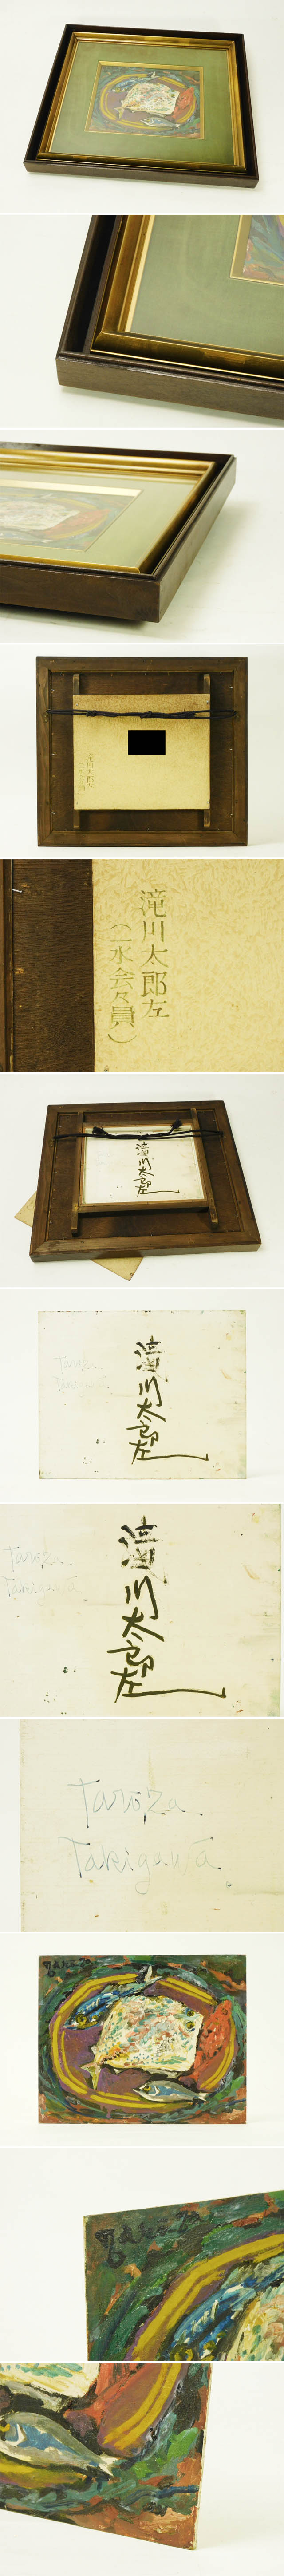 滝川太郎左
(一水会々員)
滝川太郎左
(一水会々員)
滝川太郎左
Taroza
Takigawa
滝川太郎左
Taroza
Takigawa
滝川太郎左
Taroza.
Takigawa.
Taroza
Taroza